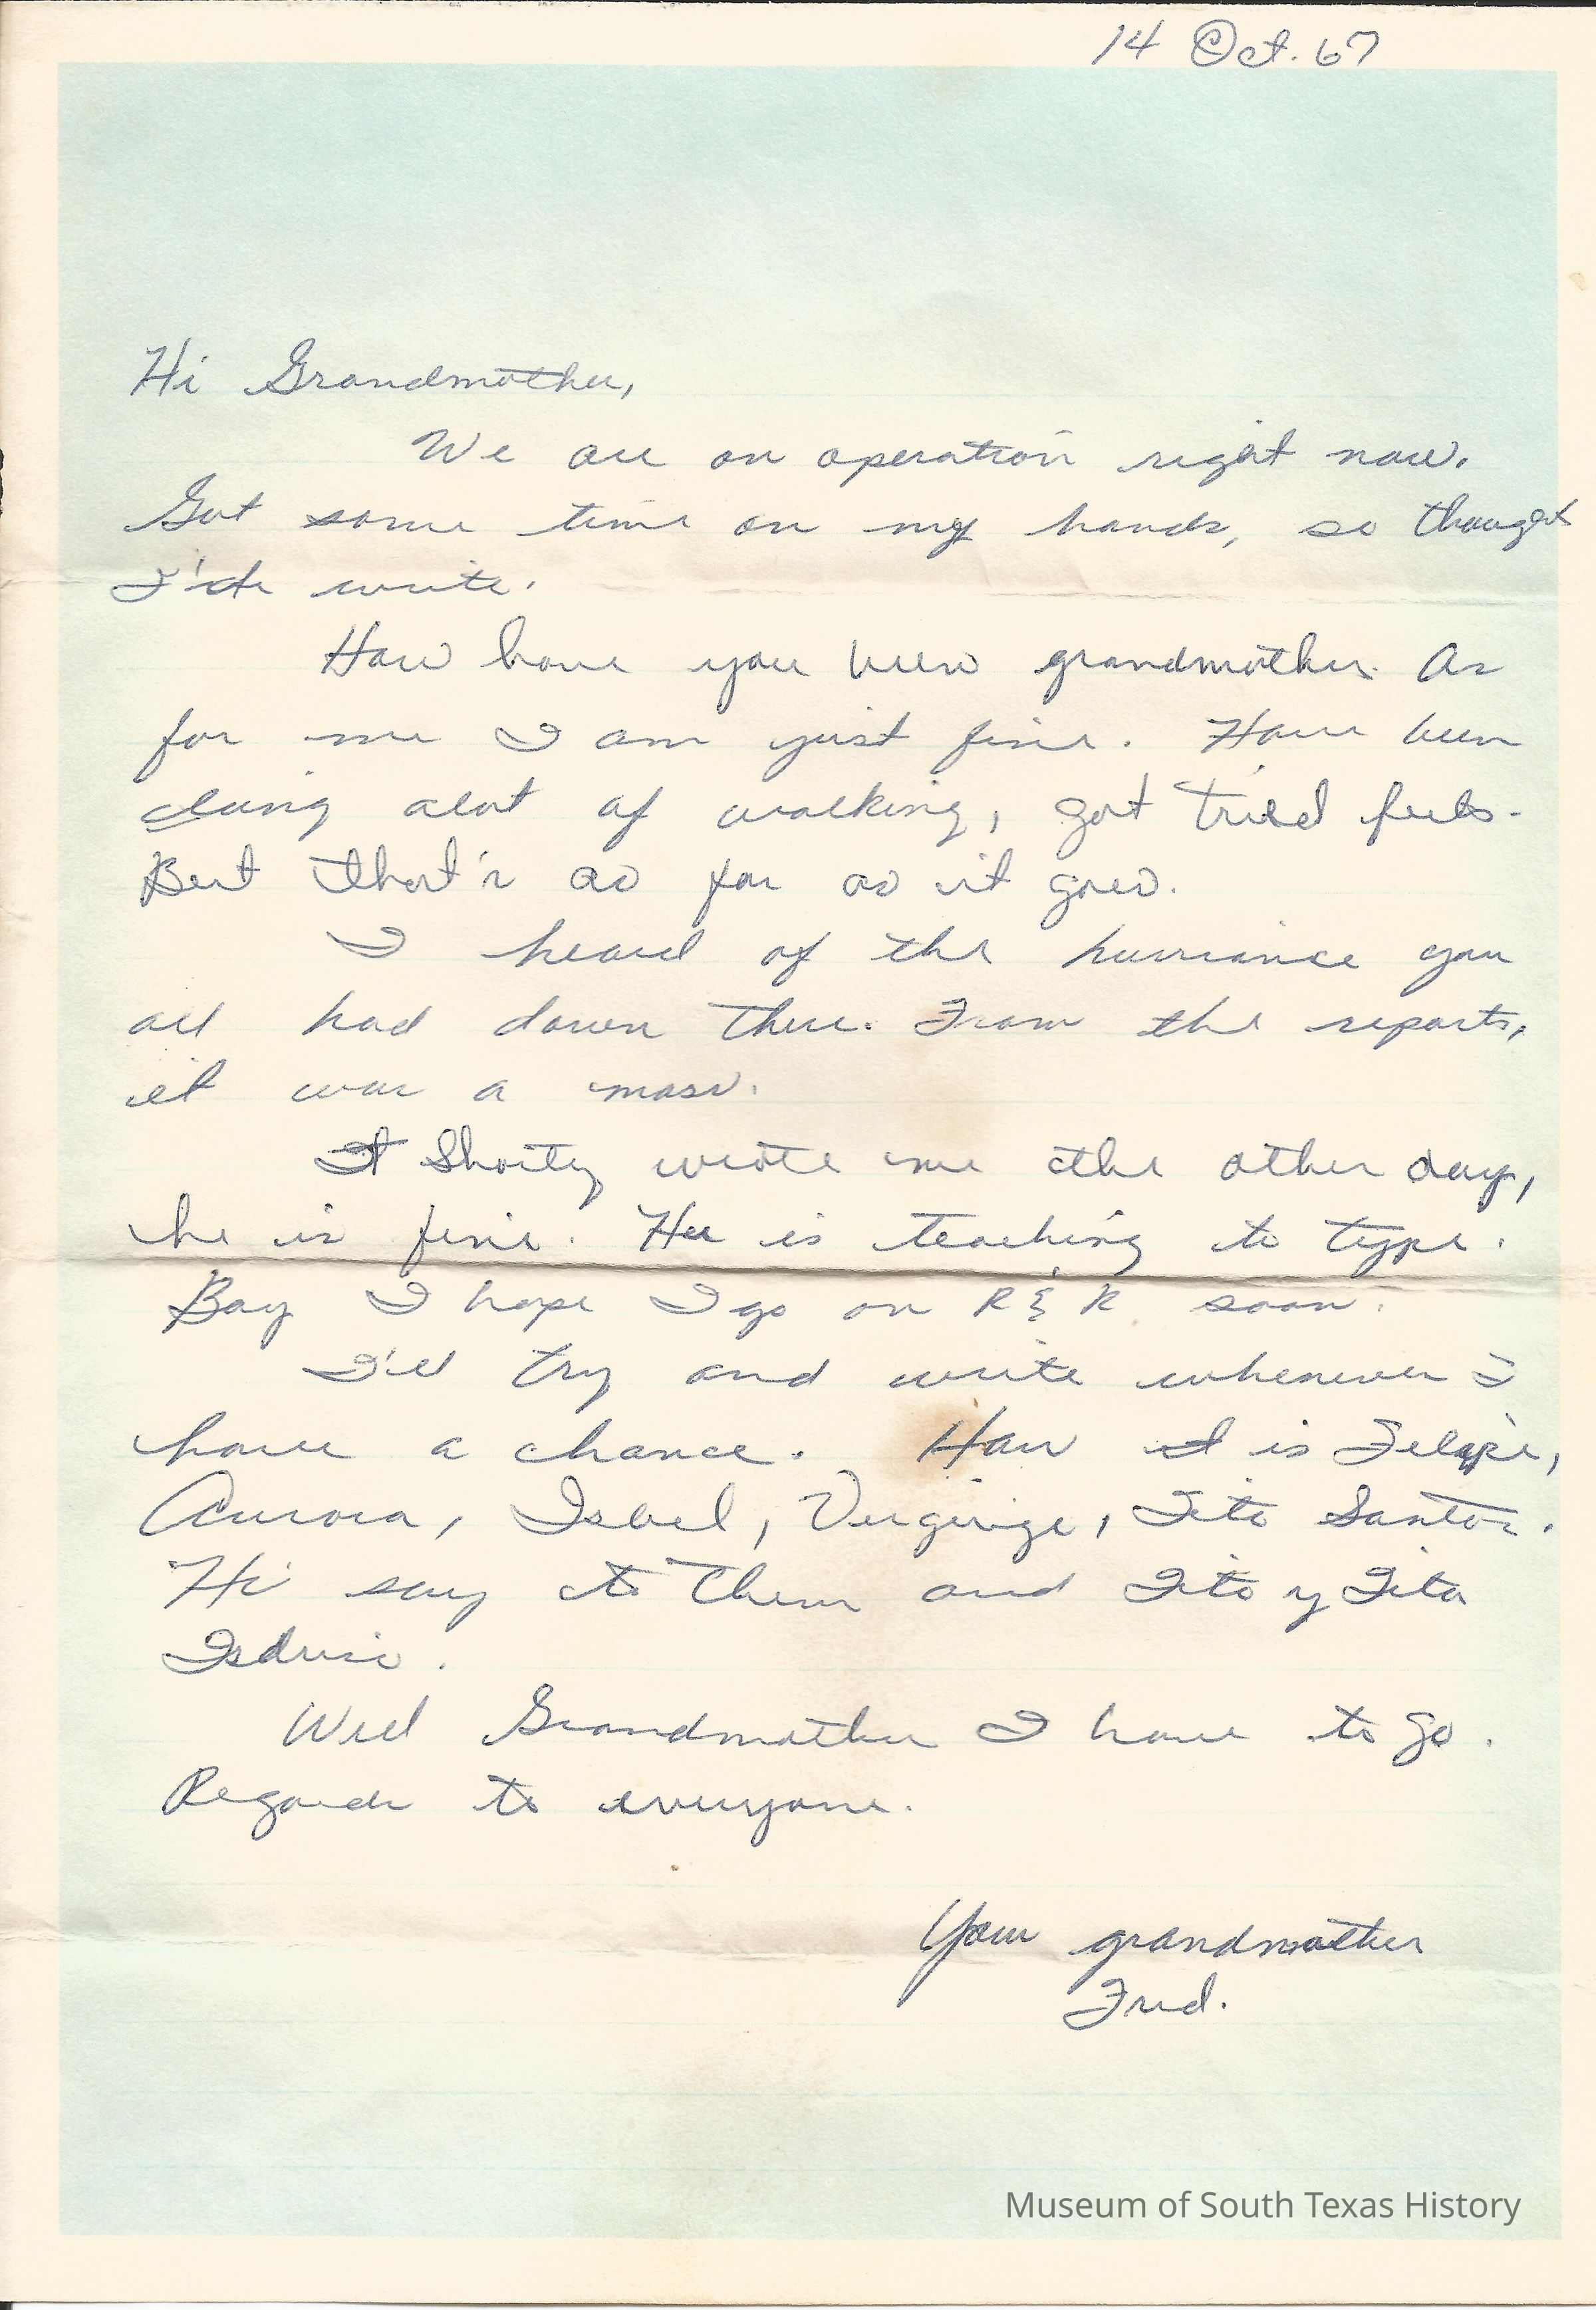 14 Oct. 67
Hi Grandmother,
We are on operation right now.
Got some time on my hands, so thought
I'de write.
How have you been grandmother. As
for me I am just fine. Have been
doing alot of walking, got tried feets.
But that's as far as it goes.
I heard of the hurriance you
all had down there. From the reports,
it was a mass.
Shorty wrote me the other day,
he is fine. He is teaching to type.
Boy I hope I go on R & R soon.
I'll try and write whenever I
have a chance. How is Felipe,
Aurora, Isbel, Verginge, Tito Santos.
Hi say to them and Tito y Tita
Isdrio.
Well Grandmother I have to go.
Regards to everyone.
Your grandmother
Fred.
Museum of South Texas History